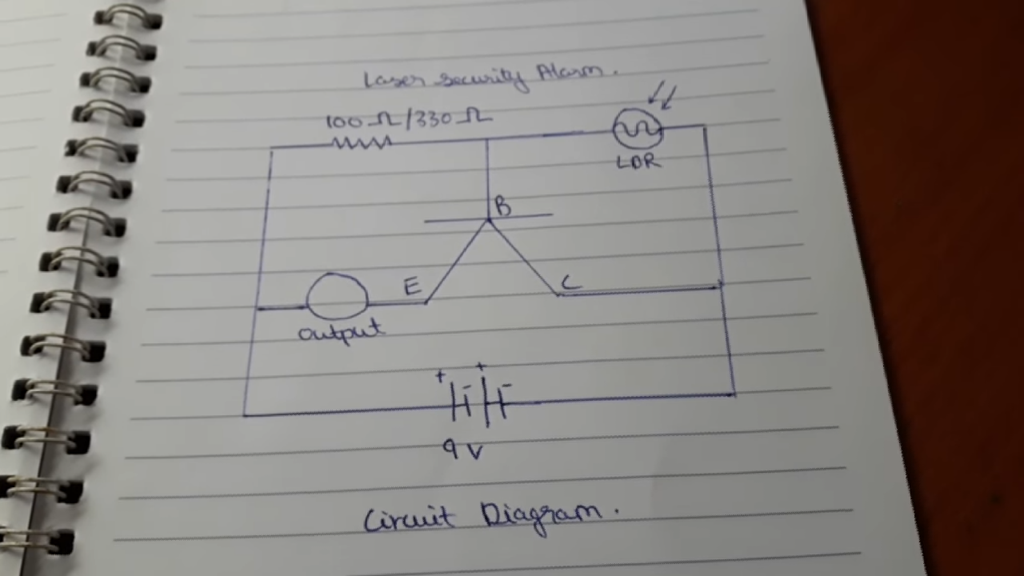 Laser security Alarm.
100Ω/330Ω
LDR
B
E
C
output
+ - + -
9 V
Circuit Diagram.